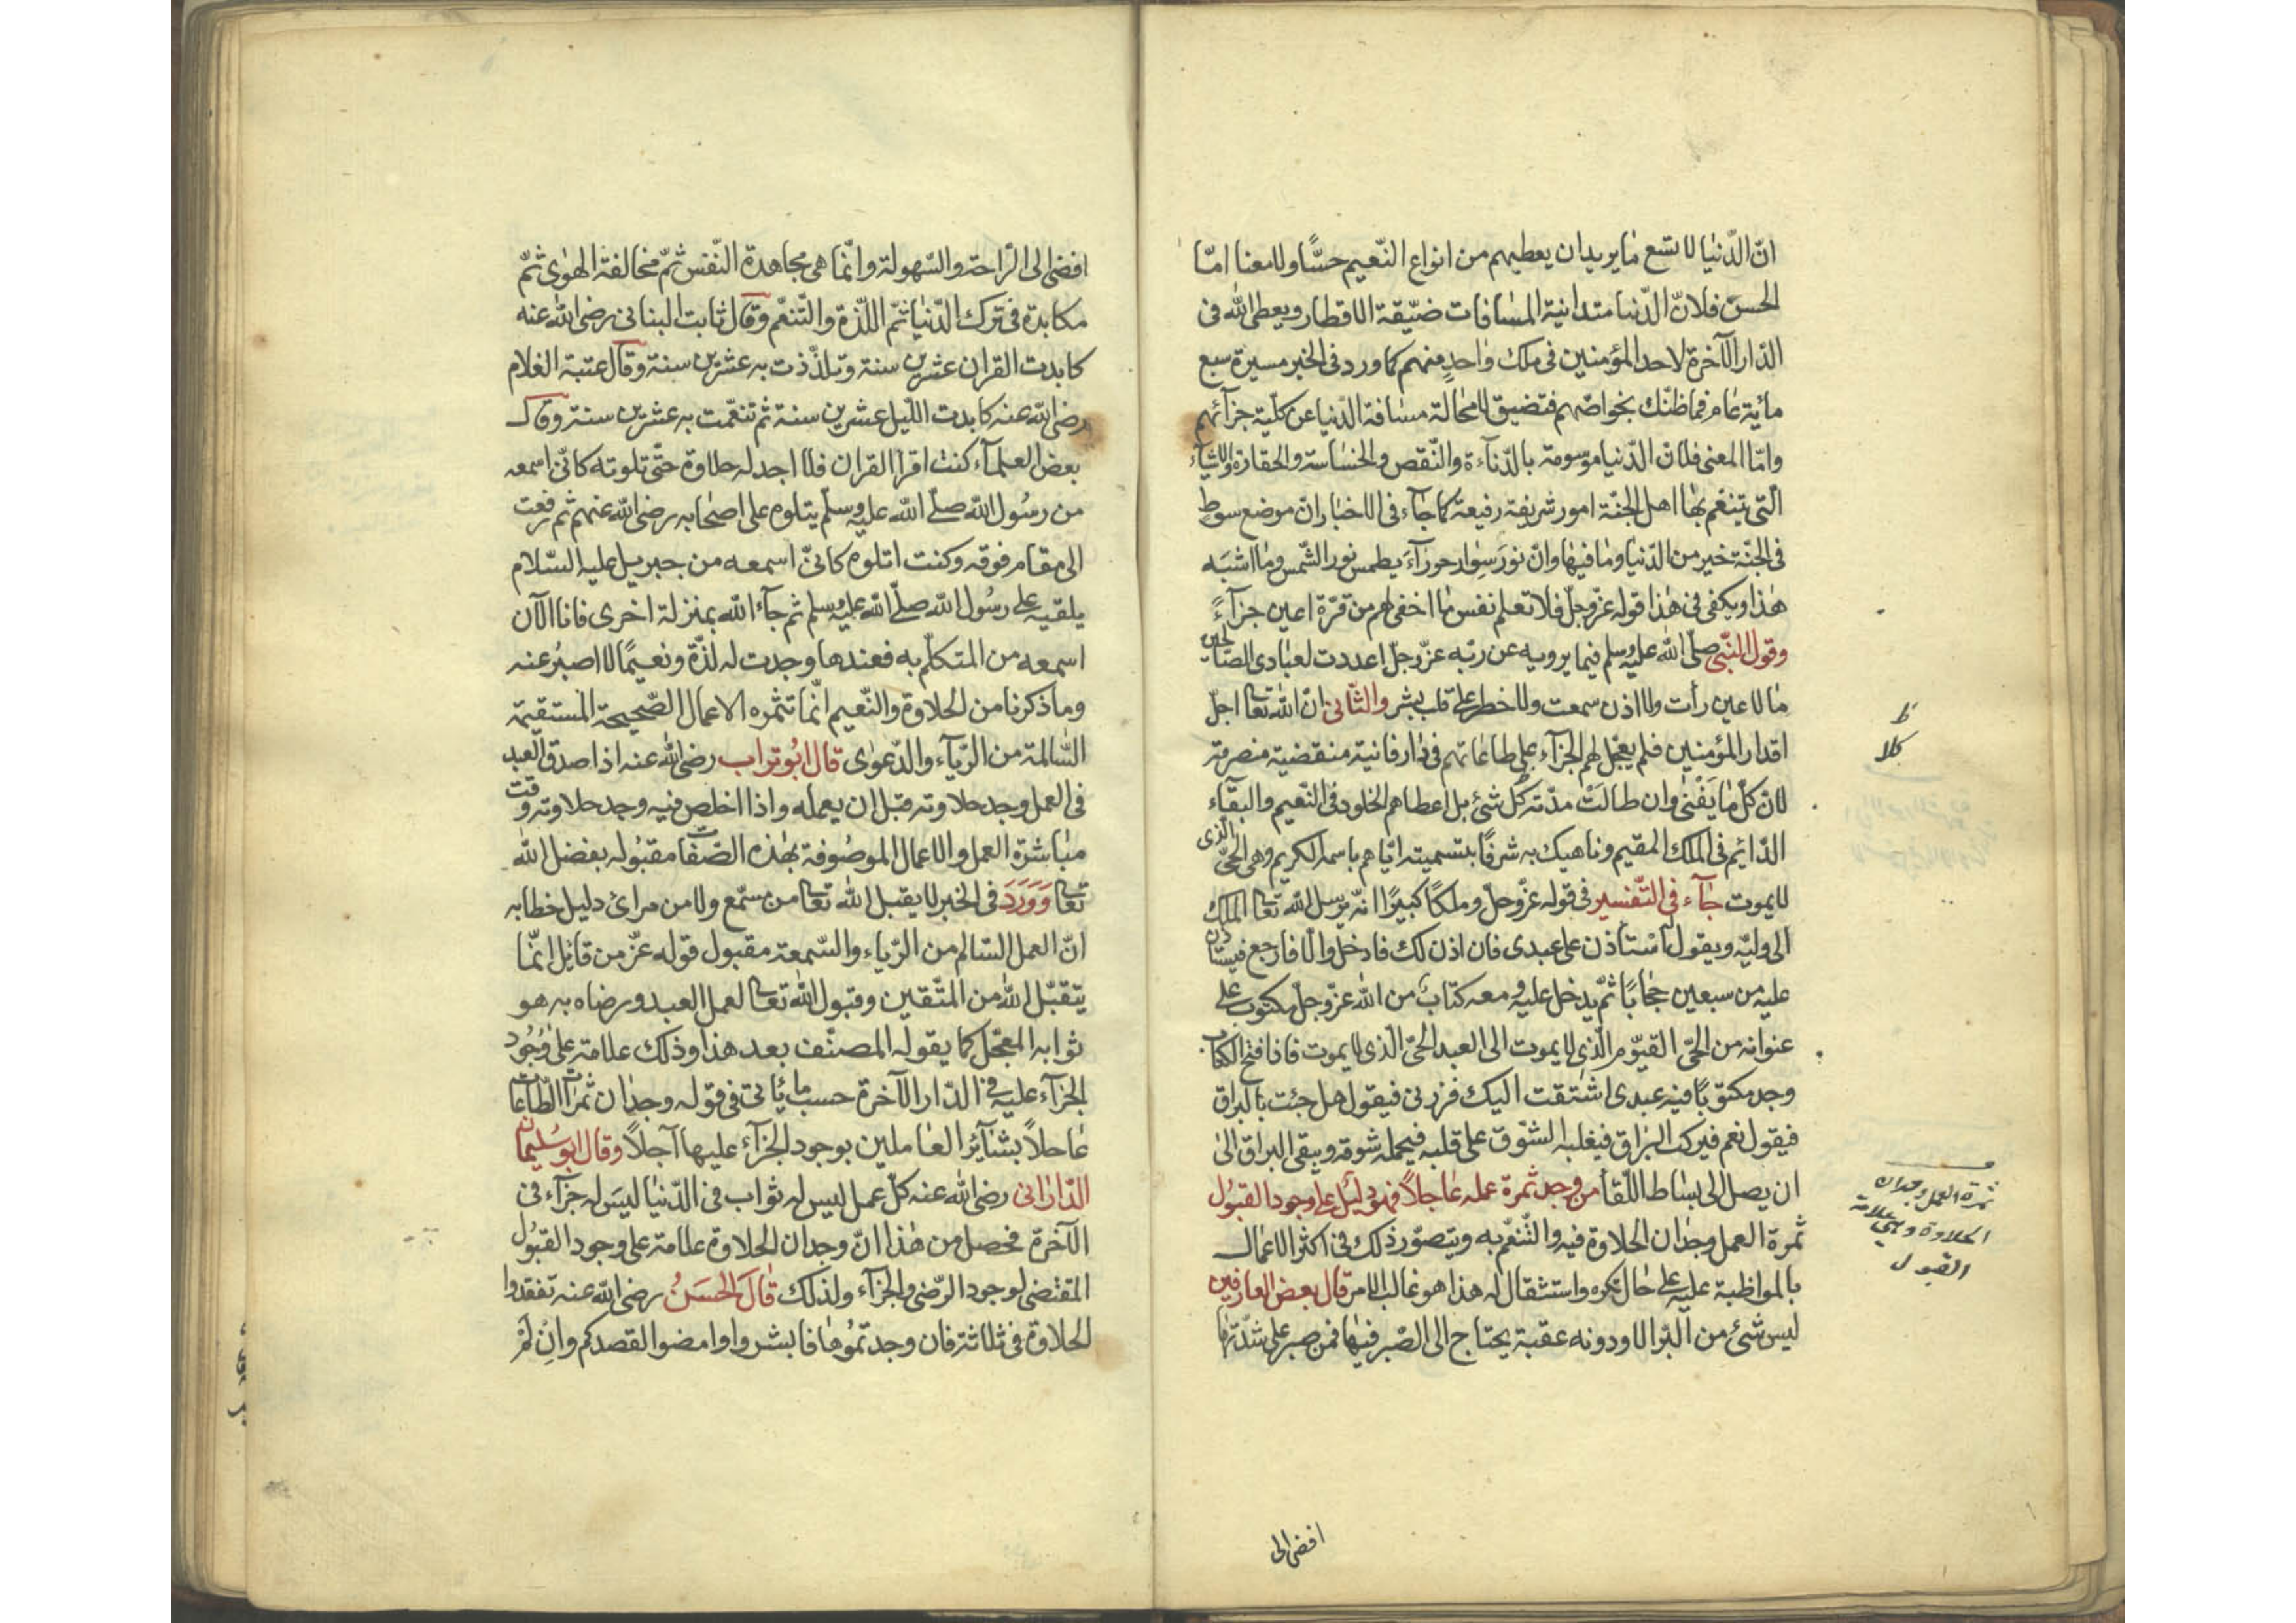 انّ الدّنيا لا تسع ما يريد ان يعطيهم من انواع النّعيم حسًّا ولا معنا امّا
الحسّ فلانّ الدّنيا متدانية المسافات ضيّقة الاقطار ويعطى الله فى
الدّار الآخرة لاحد المؤمنين فى ملك واحدٍ منهم كما ورد فى الخبر مسيرة سبع
مائة عام فما ظنّك بخواصّهم فتضيق لا محالة مسافة الدّنيا عن كلّية جزآئهم
وامّا المعنى فلانّ الدّنيا موسومة بالدّنآءة والنّقص والخساسة والحقارة والاشيآء
الّتى يتنعّم بها اهل الجنّة امور شريفة رفيعة كما جآء فى الاخبار انّ موضع سوطٍ
فى الجنّة خير من الدّنيا وما فيها وانّ نورَ سِوار حورآءَ يطمس نور الشّمس وما اشبَه
هٰذا ويكفى فى هٰذا قوله عزّ وجلّ فلا تعلم نفس ما اخفى لهم من قرّة اعين جزآءً
وقول النّبى صلّى الله عليه وسلم فيما يرويه عن ربّه عزّ وجلّ اعددت لعبادى الصّالحين
ما لا عين رأت ولا اذن سمعت ولا خطر على قلب بشر والثّانى انّ الله تعا اجلّ
اقدار المؤمنين فلم يعجّل لهم الجزآء على طاعاتهم فى دار فانية منقضية منصرمة
لانّ كلّ ما يَفْنى وان طالَتْ مدّته كَلا شئ بل اعطاهم الخلود فى النّعيم والبقآء
الدّائم فى الملك المقيم وناهيك به شرفًا بتسميته ايّاهم باسمه الكريم وهى الحىّ الّذى
لا يموت جآء فى التّفسير فى قوله عزّ وجلّ وملكًا كبيرًا انّه يرسل الله تعا الملك
الى وليّه ويقول له استأذن على عبدى فان اذن لك فادخل والّا فارجع فيستاذن
عليه من سبعين حجابًا ثمّ يدخل عليه ومعه كتابٌ من الله عزّ وجلّ مكتوب على
عنوانه من الحىّ القيّوم الّذى لا يموت الى العبد الحىّ الّذى لا يموت فاذا فتح الكتاب
وجد مكتوبًا فيه عبدى اشتقت اليك فزرنى فيقول هل جئت بالبراق
فيقول نعم فيركب البراق فيغلبه الشوق على قلبه فيحمله شوقه ويبقى البراق الىٰ
ان يصل الى بساط اللّقآ من وجد ثمرة عمله عاجلاً فهو دليل على وجود القبول
ثمرة العمل وجدان الحلاوة فيه والتّنعّم به ويتصوّر ذلك فى اكثر الاعمال
بالمواظبة عليه على حال تكره واستثقال له هذا هو غالب الامر قال بعض العارفين
ليس شئ من البرّ الا ودونه عقبة يحتاج الى الصّبر فيها فمن صبر على شدّتها
ظ
كلا
ثمرة العمل وجدان
الحلاوة وهى علامة
القبول
افضى الى
افضى الى الرّاحة والسّهولة وانّما هى مجاهدة النّفس ثمّ مخالفة الهوٰى ثمّ
مكابدة فى ترك الدّنيا ثمّ اللّذة والتّنعّم وقال ثابت البنانى رضى الله عنه
كابدت القران عشرين سنة وتلذّذت به عشرين سنة وقال عتبة الغلام
رضى الله عنه كابدت اللّيل عشرين سنة ثم تنعّمت به عشرين سنة وقال
بعض العلمآء كنت اقرا القران فلا اجد له حلاوة حتّى تلوته كانّى اسمعه
من رسُول الله صلّى الله عليه وسلّم يتلوه على اصحابه رضى الله عنهم ثم رفعت
الى مقام فوقه وكنت اتلوه كانّى اسمعه من جبريل عليه السّلام
يلقيه على رسُول الله صلّى الله عليه وسلم ثم جآء الله بمنزلة اخرى فانا الآن
اسمعه من المتكلّم به فعندها وجدت له لذّة ونعيمًا لا اصبُر عنه
وما ذكرنا من الحلاوة والنّعيم انّما تثمره الاعمال الصّحيحة المستقيمة
السّالمة من الرّيآء والدّعوٰى قال ابُو تراب رضى الله عنه اذا صدق العبد
فى العمل وجد حلاوته قبل ان يعمله واذا اخلص فيه وجد حلاوته وقت
مباشرة العمل والاعمال الموصُوفة بهٰذه الصّفات مقبُوله بفضل الله
تعا وَوَرَدَ فى الخبر لا يقبل الله تعا من مسمّع ولا من مرائ دليل خطابه
انّ العمل السّالم من الرّياء والسّمعة مقبول قوله عزّ من قائل انّما
يتقبّل الله من المتّقين وقبول الله تعا لعمل العبد ورضاه به هو
ثوابه المعجّل كما يقوله المصنّف بعد هذا وذلك علامة على وُجُود
الجزآء عليه فى الدّار الآخرة حسب ما ياتى فى قوله وجدان ثمرات الطّاعات
عاجلاً بشآئر العاملين بوجود الجزآء عليها آجلاً وقال ابو سُليمان
الدّارانى رضى الله عنه كلّ عمل ليس له ثواب فى الدّنيا ليسَ له جزآء فى
الآخرة فحصل من هٰذا انّ وجدان الحلاوة علامة على وجود القبُول
المقتضى لوجود الرّضى والجزآء ولذلك قالَ الحسَنُ رضى الله عنه تفقدوا
الحلاوة فى ثلاثة فان وجدتمُوها فابشروا وامضوا لقصدكم وان لم